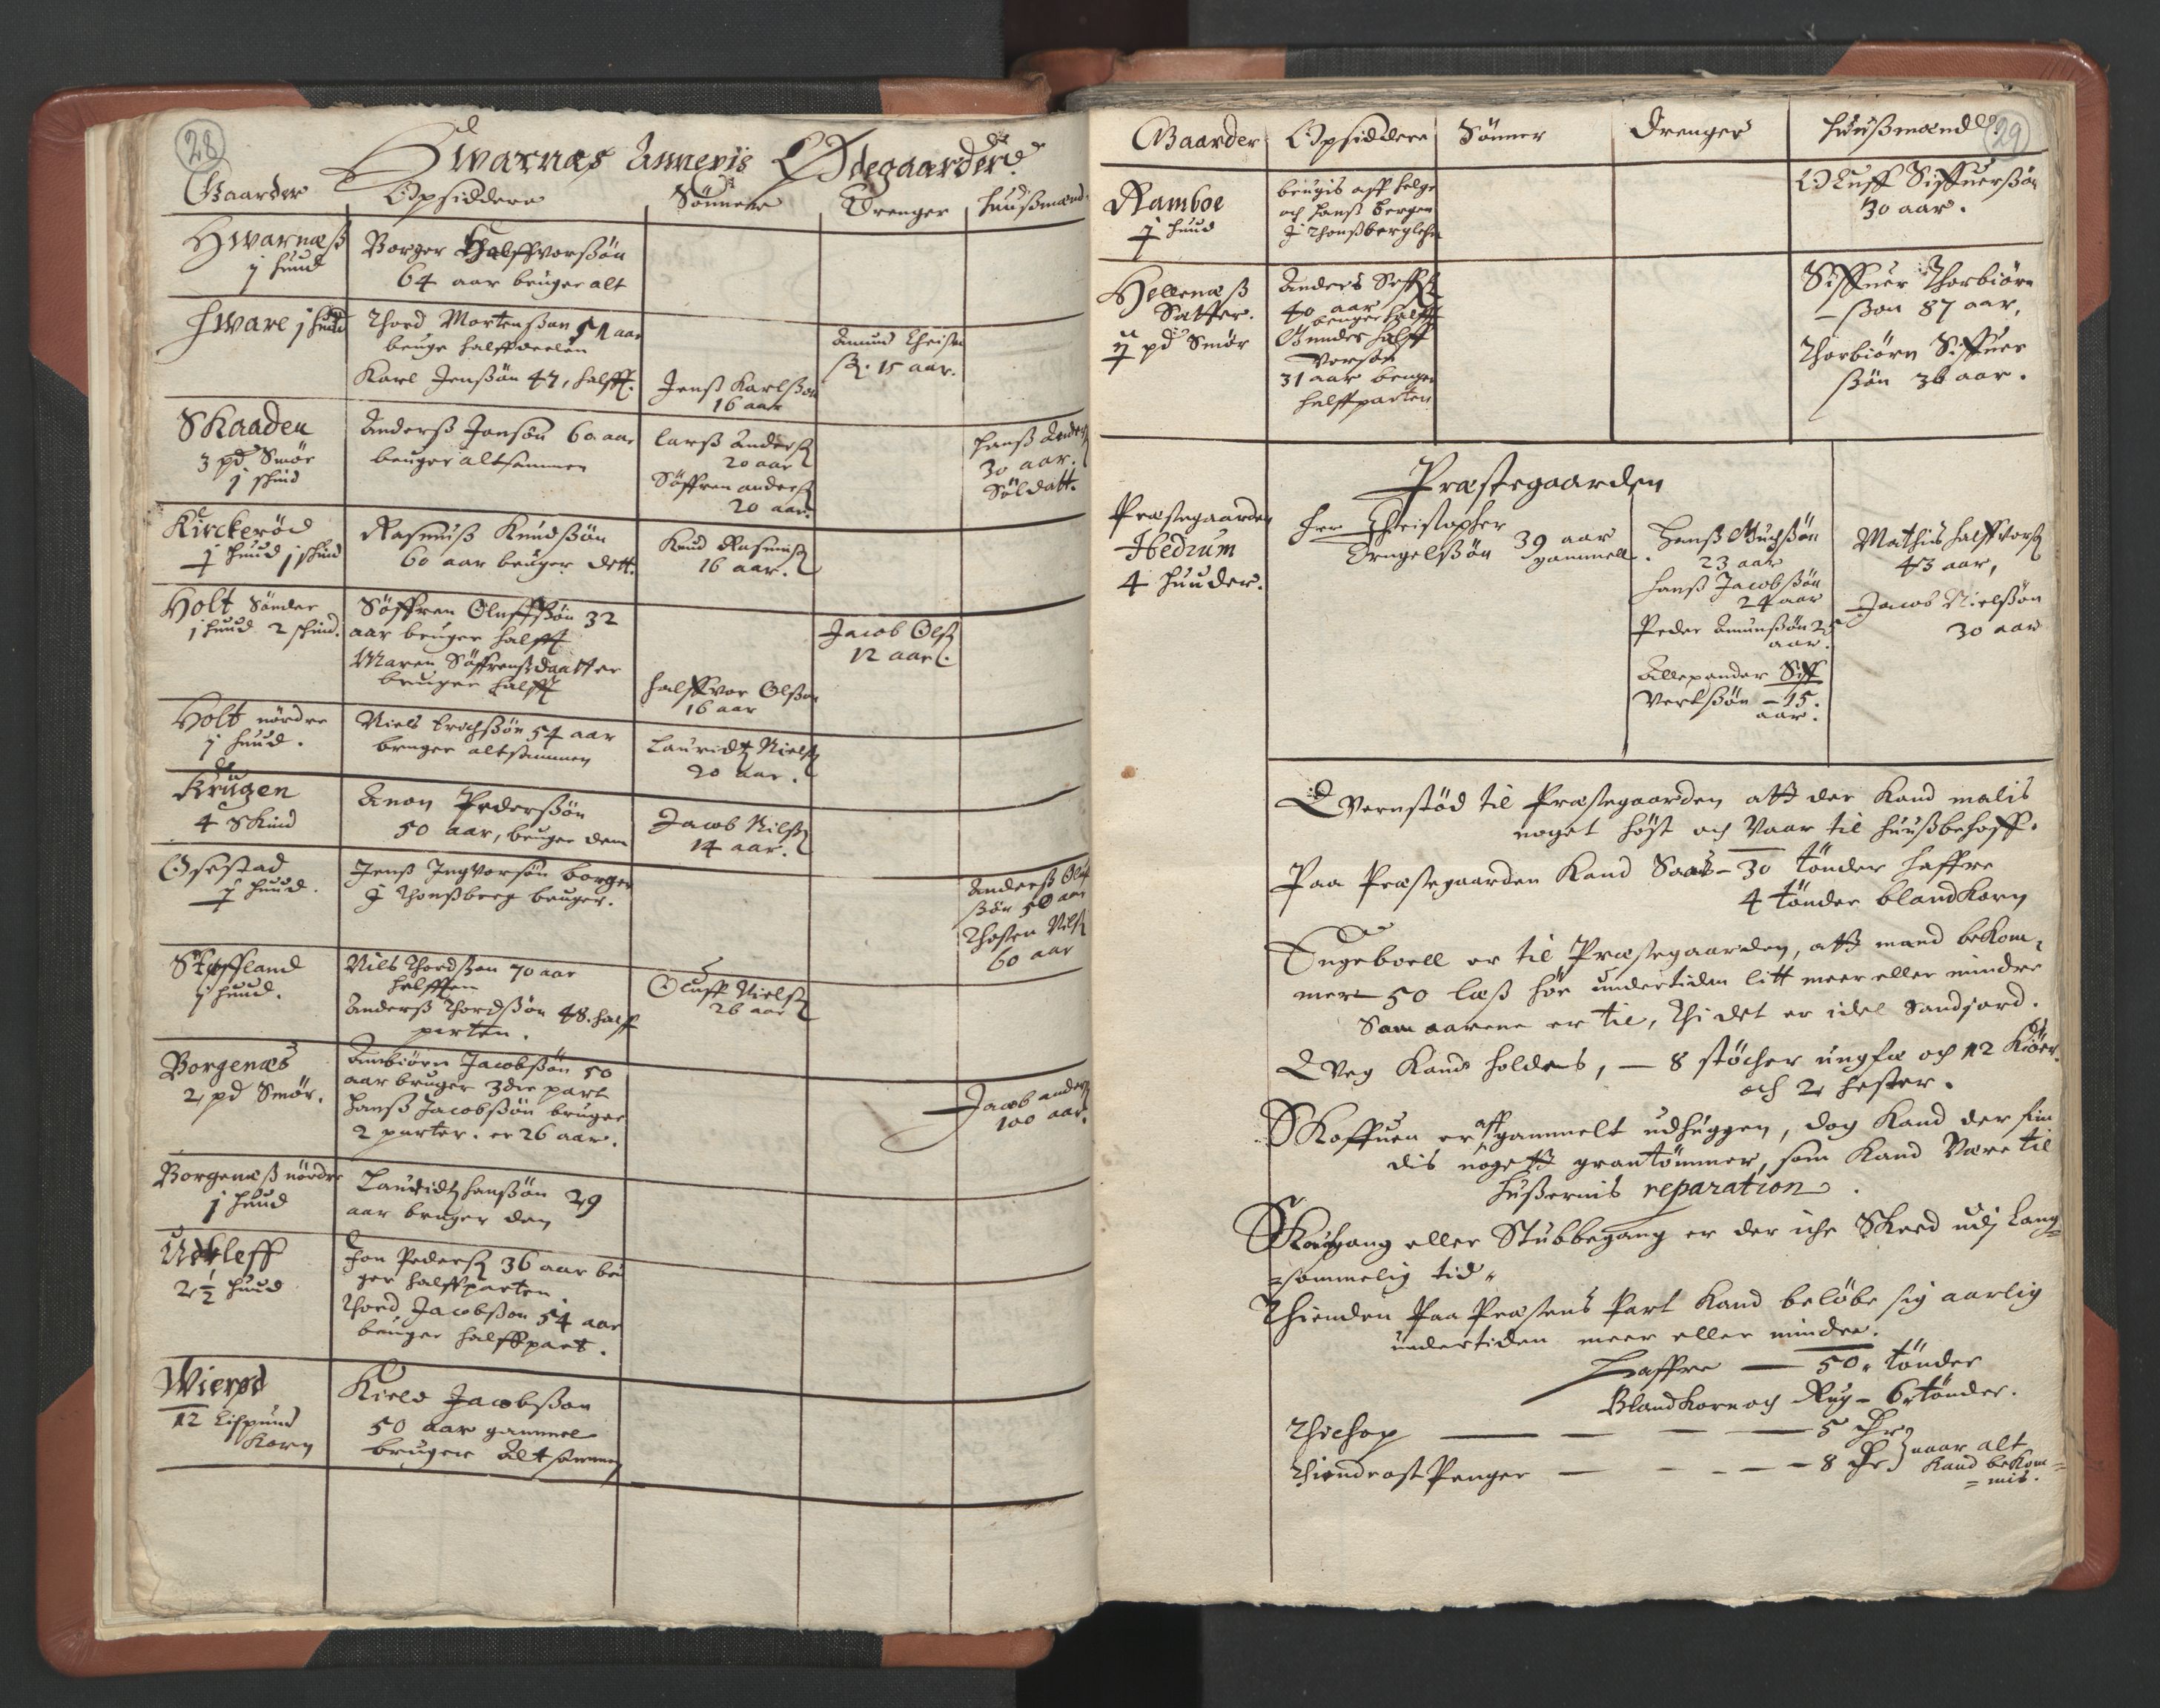 28
Hwarnæs Annexis Ödegaarder
Gaarder Opsiddere Sönner Drenger huußmænd
Hwarnæß
j huud
Borger Hallffvorßön
64 aar bruger alt
Hware j huud
Thord Mortenßøn 51 aar
bruge halffdeelen
Karl Jenßön 47, halfft.
Jenß Karlßøn
16 aar
Amund Christe
ß. 15 aar.
Skaaden
3 pd Smör
j skind
Anderß Jonsön 60 aar
bruger altsammen
Larß Anderß
20 aar
Söffren anderß
20 aar
Hanß Anderß
30 aar.
Soldatt.
Kirckeröd
½ huud j skind
Rasmuß Knudßön
60 aar bruger dett.
Knud Rasmuß
16 aar.
Holt Sönder
j huud 2 skind.
Söffren Oluffßön 32
aar bruger halfft
Maren Söffrenßdaatter
bruger halfft
Halffvor Olßøn
16 aar
Jacob Olß
12 aar.
Holt nördre
j huud.
Niels Erichßön 54 aar
bruger altsammen
Lauridtz Nielß
20 aar.
Krugen
4 Skind
Anon Pederßön
50 aar, bruger dem
Jacob Nilß
14 aar.
Osestad
½ huud.
Jenß Ingvorsön borger
J Thonßberg bruger.
Anderß Oluf
ßön 50 aar
Thosten Nilß
60 aar
Skoffland
j huud.
Nils Thordßøn 70 aar
helfften
Anderß Thordßön 48. half
parten.
Oluff Nielß
26 aar
Borgenæs
2 pd Smör.
Anbiörn Jacobßön 50
aar bruger 3die part
Hanß Jacobßön bruger
2 parter. er 26 aar.
Jacob anderß
100 aar.
Borgenæß nördre
j huud
Lauridtz Hanßön 29
aar bruger den
Utkleff
2 ½ huud
Jon Pederß 36 aar bru
ger halffparten.
Thord Jacobßøn 54 aar
bruger halffpart.
Wierød
12 Lispund
Korn
Kield Jacobßøn
50 aar gammel
bruger Altsammen
29
Gaarder Opsiddere Sönner Drenger Huußmænd
Ramboe
½ huud
brugis aff Helge
och Hanß Bergen
J Thonßberglehn
Oluff Siffuerßøn
30 aar.
Hellenæß
Sætter.
½ pd Smör
Anders Seffß
40 aar
bruger halfft
Gunder Halff
Vorsøn
31 aar bruger
halffparten
Siffuer Thorbiörn
ßøn 87 aar,
Thorbiörn Siffuer
ßön 36 aar.
Præstegaarden
Præstegaarden
Hedrum
4 Huuder.
Herr Christopher
Engelßön 39 aar
gammell.
Hanß Gudßön
23 aar
Hanß Jacobßön
24 aar
Peder Amunßön 25
aar.
Allexander Siff
Vertßön - 15.
aar.
Mathis halffvorß
43 aar,
Jacob Nielßön
30 aar
Qvernstöd til Præstegaarden att der kand malis
noget höst och Vaar til huußbehoff.
Paa Præstegaarden kand Saais - 30 tönder haffre
4 tönder blandkorn
Engeboell er til Præstegaarden, att mand bekom,
mer 50 læß höe undertiden litt meer eller mindre
Som aarene er til, thi det er idel Sandjord.
Qveg kand holdes, — 8 stöcher ungfæ och 12 Kiöer
och 2 hester.
Skoffuen er aff gammelt udhuggen, dog kand der fin
dis nogett grantömmer, som kand være til
hußernis reparation.
Skougang eller Stubbegang er der iche Skeed udj lang¬
sommelig tid.
Thienden paa Præstens part kand belöbe sig aarlig
undertiden meer eller mindre.
Haffre — 50. tönder
Blandkorn och Rug - 6 tönder.
— 5 dlr
Thiendeost Penger — 8 dlr naar alt
kand bekom¬
mis.